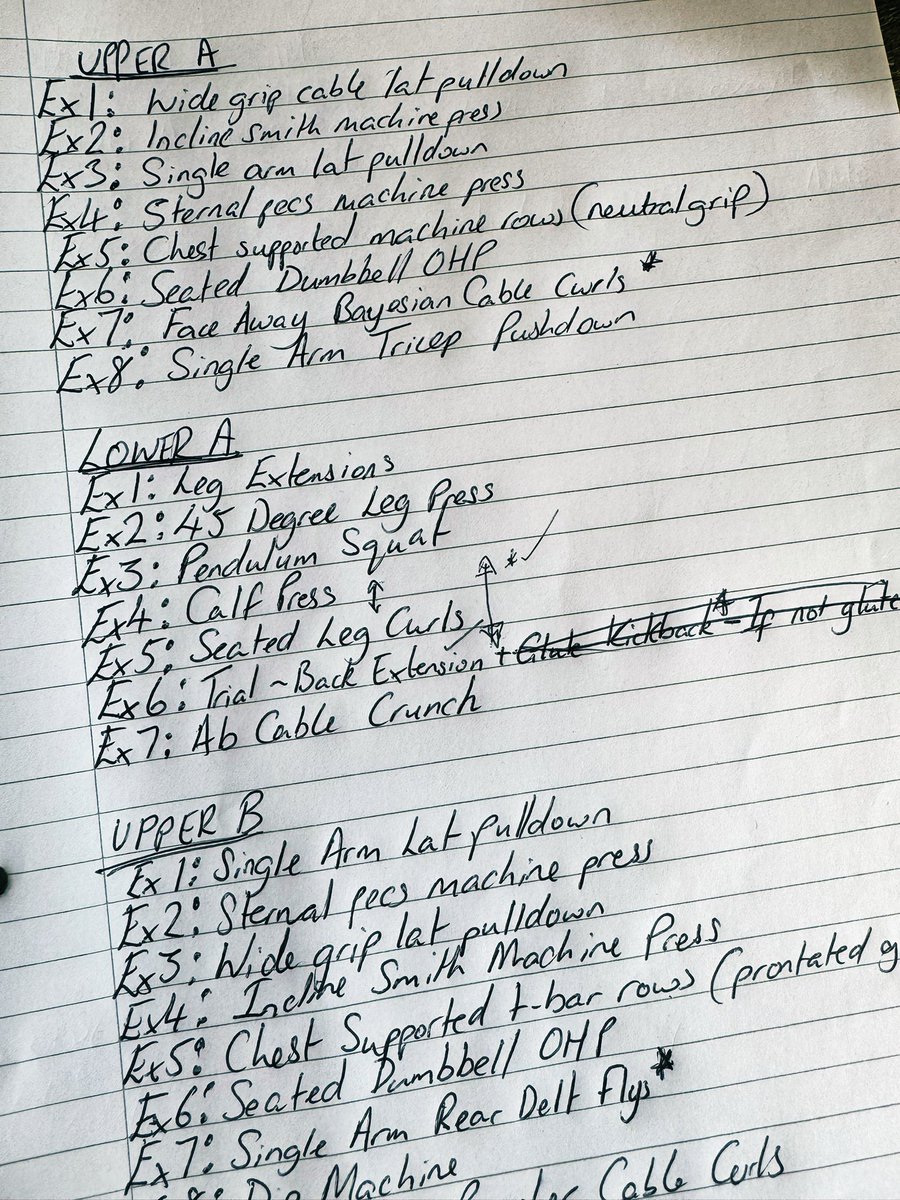 UPPER A
Ex1: Wide grip cable lat pulldown
Ex2: Incline Smith machine press
Ex3: Single arm lat pulldown
Ex4: Sternal pecs machine press
Ex5: Chest supported machine rows (neutral grip)
Ex6: Seated Dumbbell OHP
Ex7: Face Away Bayesian Cable Curls *
Ex8: Single Arm Tricep Pushdown
LOWER A
Ex1: Leg Extensions
Ex2: 45 Degree Leg Press
Ex3: Pendulum Squat
Ex4: Calf Press ↕ ↕ * ✓
Ex5: Seated Leg Curls
Ex6: Trial ~ Back Extension ✓ + Glute Kickback * - If not glute
Ex7: Ab Cable Crunch
UPPER B
Ex1: Single Arm Lat pulldown
Ex2: Sternal pecs machine press
Ex3: Wide grip lat pulldown
Ex4: Incline Smith Machine Press
Ex5: Chest Supported t-bar rows (prontated g
Ex6: Seated Dumbbell OHP
Ex7: Single Arm Rear Delt Flys *
Dip Machine
Cable Curls